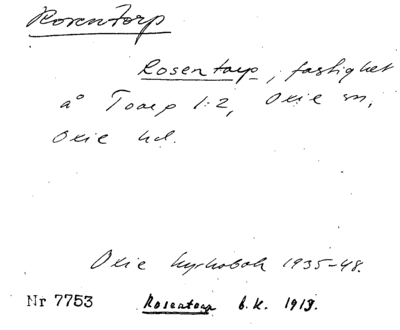 Rosentorp
Rosentorp, fastighet
å Toarp 1:2, Oxie sn,
Oxie hd.
Oxie kyrkobok 1935-48.
Nr 7753 Rosentorp b.K. 1913.